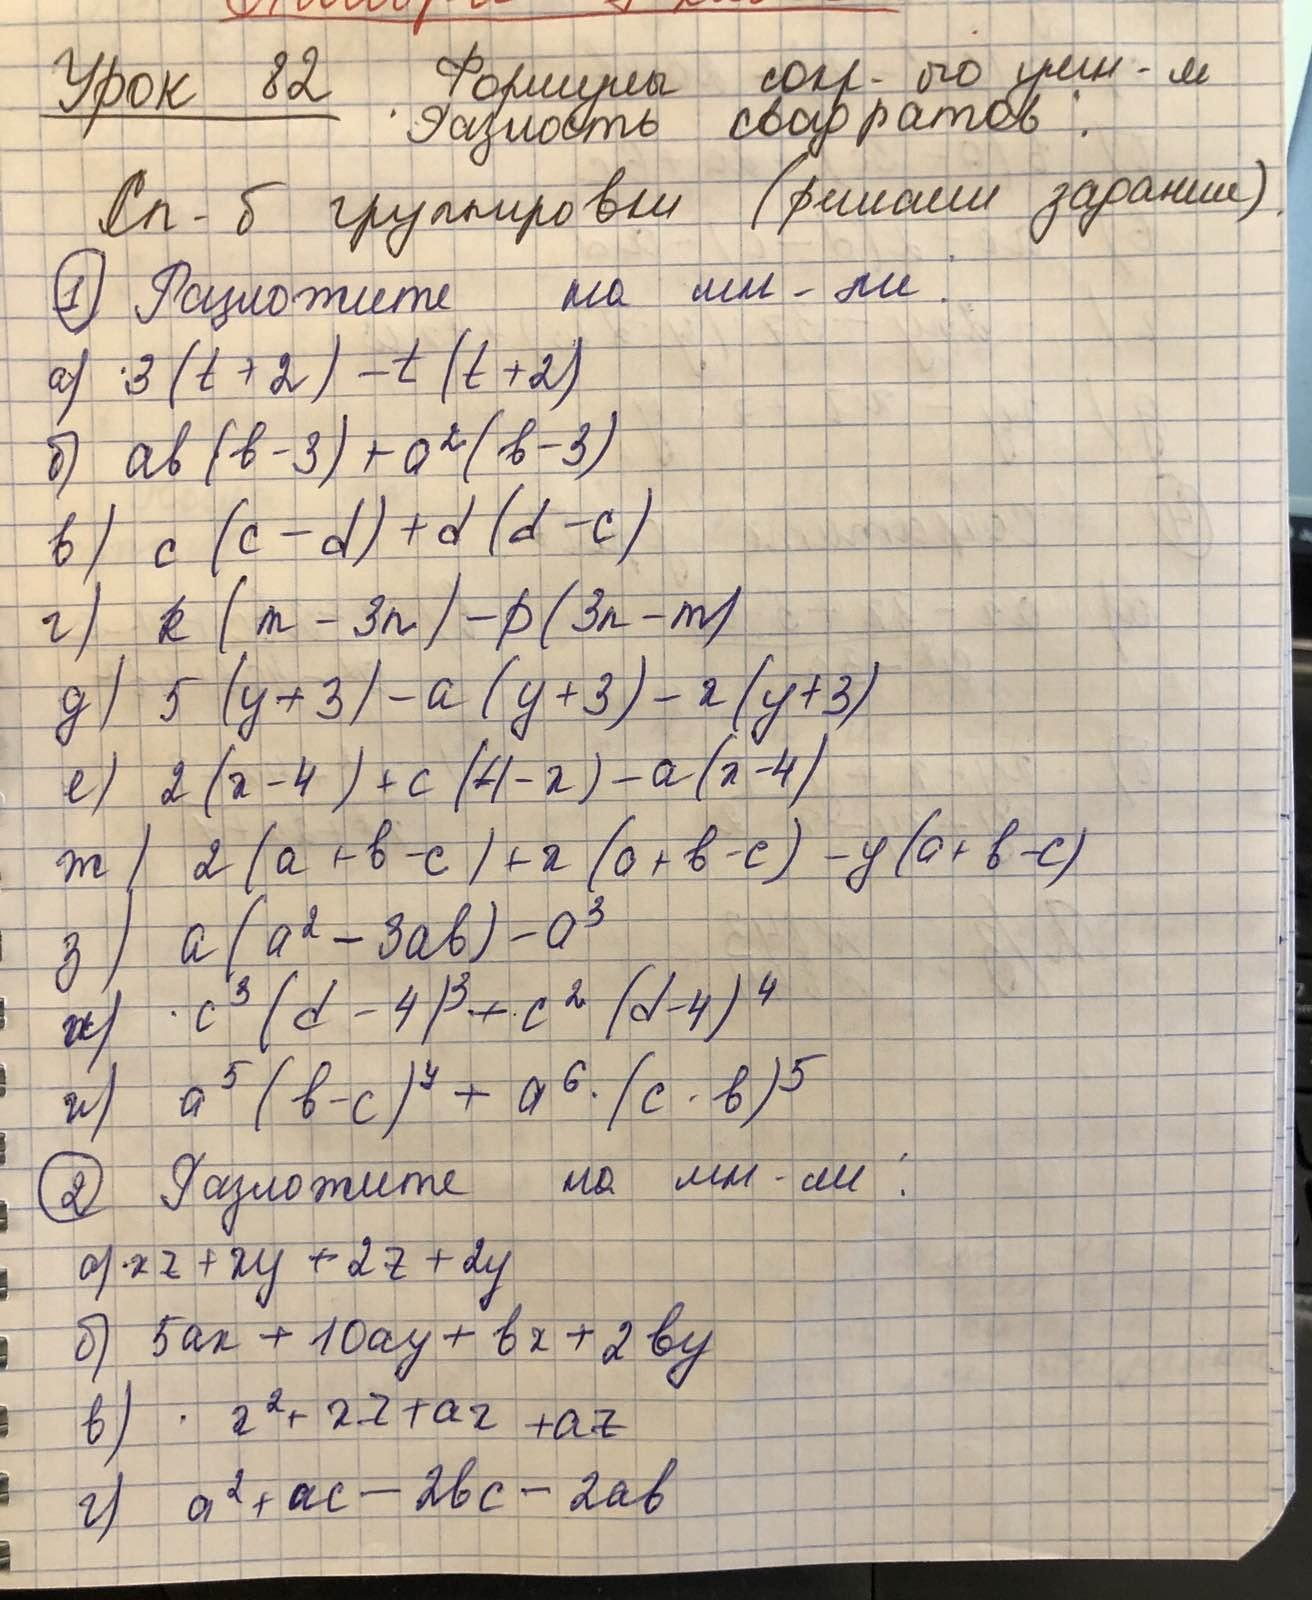 Урок 82 Формулы сокр-го умн-я
Разность квадратов.
Сп-б группировки (решаем задание).
1) Разложите на мн-ли:
а) 3(t+2)-t(t+2)
б) ab(b-3)+a²(b-3)
в) c(c-d)+d(d-c)
г) k(m-3n)-p(3n-m)
д) 5(y+3)-a(y+3)-x(y+3)
е) 2(x-4)+c(4-x)-a(x-4)
ж) 2(a+b-c)+x(a+b-c)-y(a+b-c)
з) a(a²-3ab)-a³
и) c³(d-4)³+c²(d-4)⁴
и) a⁵(b-c)⁴+a⁶·(c-b)⁵
2) Разложите на мн-ли:
а) xz+xy+2z+2y
б) 5ax+10ay+bx+2by
в) x²+xz+ax+az
г) a²+ac-2bc-2ab